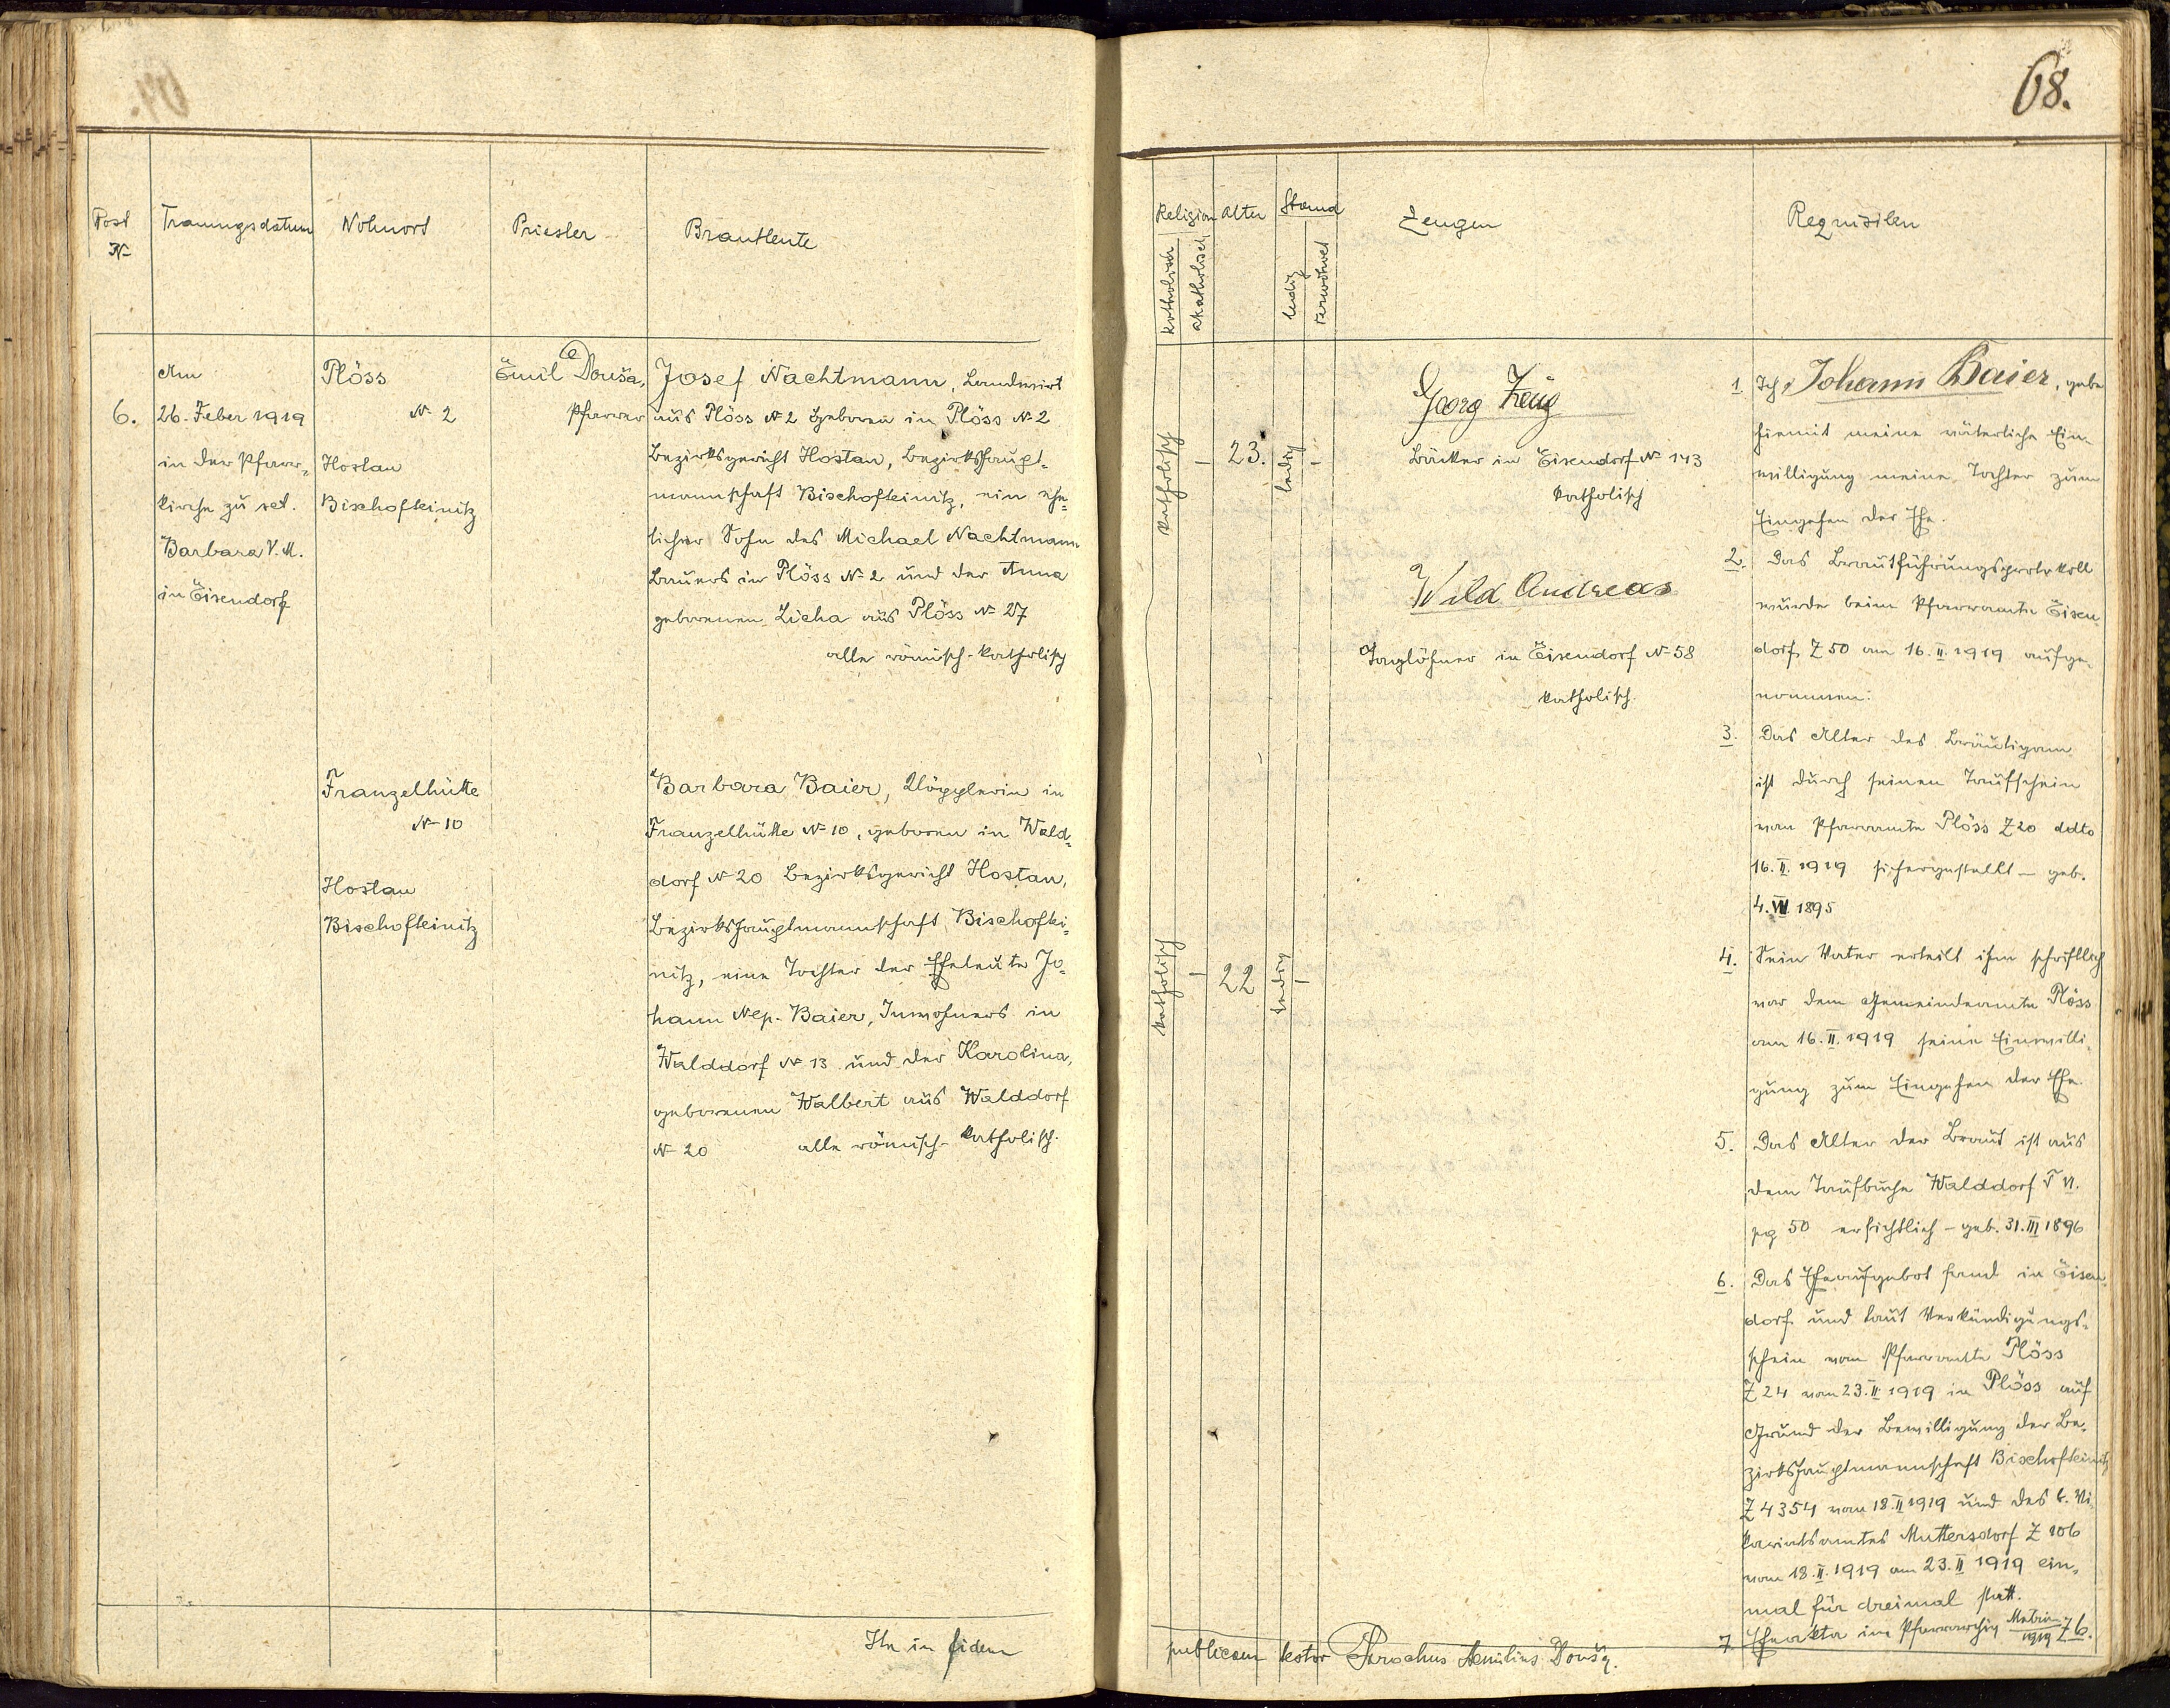 68.
Post
N=
Trauungsdatum
Wohnort
Priester
Brautleute
Religion
katholisch
akatholisch
Alter
Stand
ledig
verwitwet
Zeugen
Requisiten
6.
Am
26. Feber 1919
in der Pfarr-
kirche zu set.
Barbara V. M.
in Eisendorf
Plöss
N= 2
Hostau
Bischofteinitz
Emil Douša,
Pfarrer
Josef Nachtmann, Landwirt
aus Plöss N= 2 geboren in Plöss N= 2
Bezirksgericht Hostau, Bezirkshaupt=
mannschaft Bischofteinitz, ein ehe=
licher Sohn des Michael Nachtmann
Bauers in Plöss N= 2 und der Anna
geborenen Licha aus Plöss N= 27
alle römisch-katholisch
Franzelhütte
N= 10
Hostau
Bischofteinitz
Barbara Baier, Klöpplerin in
Franzelhütte N= 10, geboren in Wald=
dorf N= 20 Bezirksgericht Hostau,
Bezirkshauptmannschaft Bischoftei=
nitz, eine Tochter der Eheleute Jo=
hann Nep. Baier, Inwohners in
Walddorf N= 13 und der Karolina,
geborenen Walbert aus Walddorf
N= 20 alle römisch-katholisch.
katholisch
23.
ledig
katholisch
22
ledig
Georg Zeug
Bäcker in Eisendorf N= 143
katholisch
Wild Andreas
Taglöhner in Eisendorf N= 58
katholisch.
1. Ich, Johann Baier, gebe
hiemit meine väterliche Ein-
willigung meiner Tochter zum
Eingehen der Ehe.
2. Das Brautführungsprotokoll
wurde beim Pfarramte Eisen-
dorf Z 50 am 16. II. 1919 aufge-
nommen.
3. Das Alter des Bräutigam
ist durch seinen Taufschein
vom Pfarramte Plöss Z 20 ddto
16. II. 1919 sichergestellt – geb.
1895
4. Sein Vater erteilt ihm schriftlich
vor dem Gemeindeamte Plöss
am 16. II. 1919 seine Einwilli-
gung zum Eingehen der Ehe.
5. Das Alter der Braut ist aus
dem Taufbuche Walddorf T VI.
pg 50 ersichtlich – geb. 31. III 1896
6. Das Eheaufgebot fand in Eisen-
dorf und laut Verkündigungs-
schein vom Pfarramte Plöss
Z 24 vom 23. II 1919 in Plöss auf
Grund der Bewilligung der Be-
zirkshauptmannschaft Bischofteinitz
Z 4354 vom 18. II 1919 und des b. Vi-
kariatsamtes Muttersdorf Z 106
vom 18. II. 1919 am 23. II 1919 ein-
mal für dreimal statt.
7. Eheakta im Pfarrarchiv Matrim. 1919 Z 6.
Ita in fidem
publicam testor Parochus Aemilius Douša.